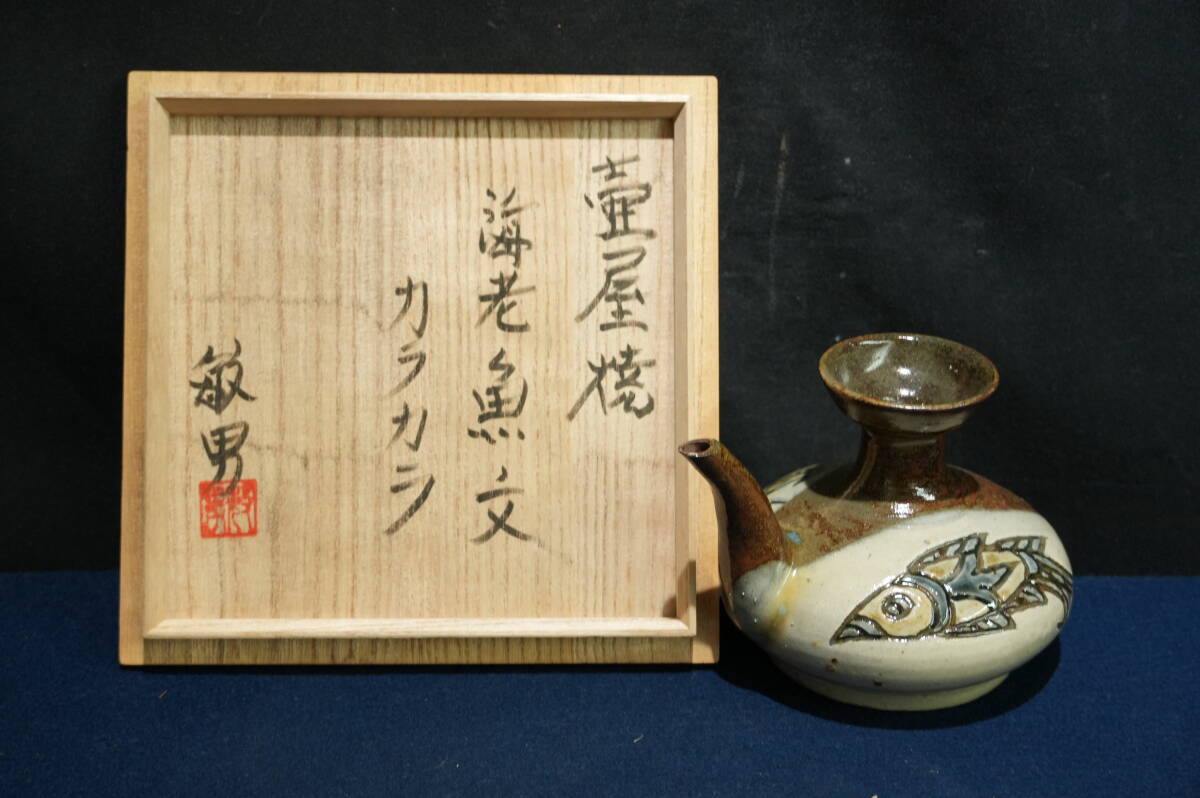 壺屋焼
海老魚文
カラカラ
敏男